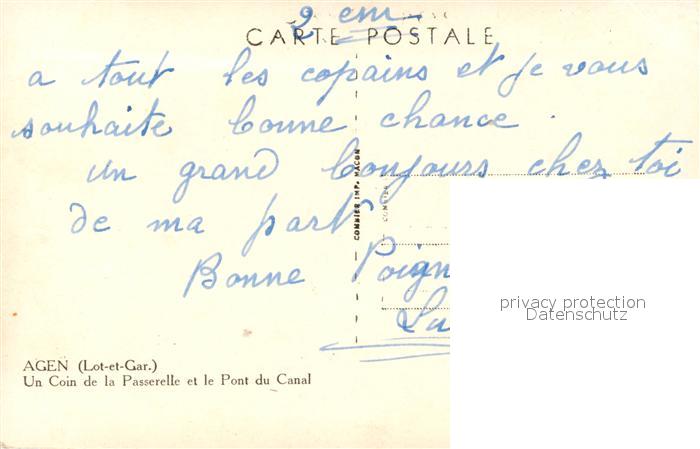 2 em
CARTE POSTALE
a tout les copains et je vous
souhaite bonne chance.
un grand bonjours chez toi
de ma part
Bonne Poign
AGEN (Lot-et-Gar.)
Un Coin de la Passerelle et le Pont du Canal
COMBIER IMP. MACON
COMBIER
privacy protection
Datenschutz